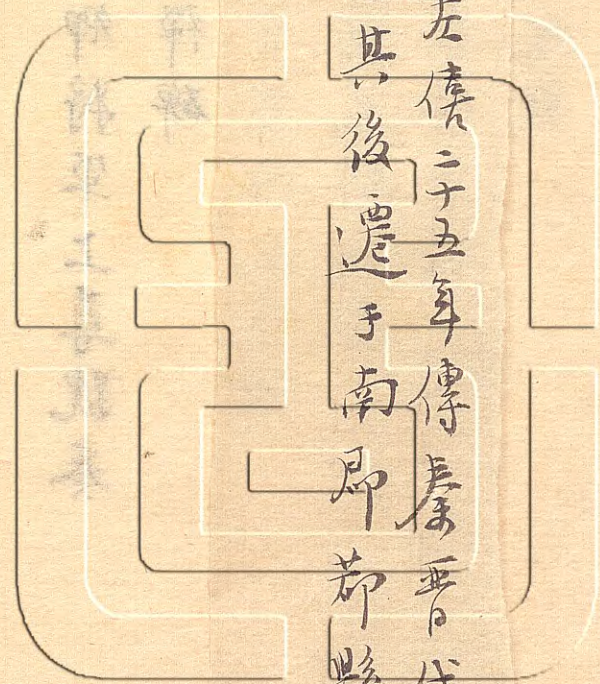 左僖二十五年傳秦晉伐
其後遷于南郡鄀縣